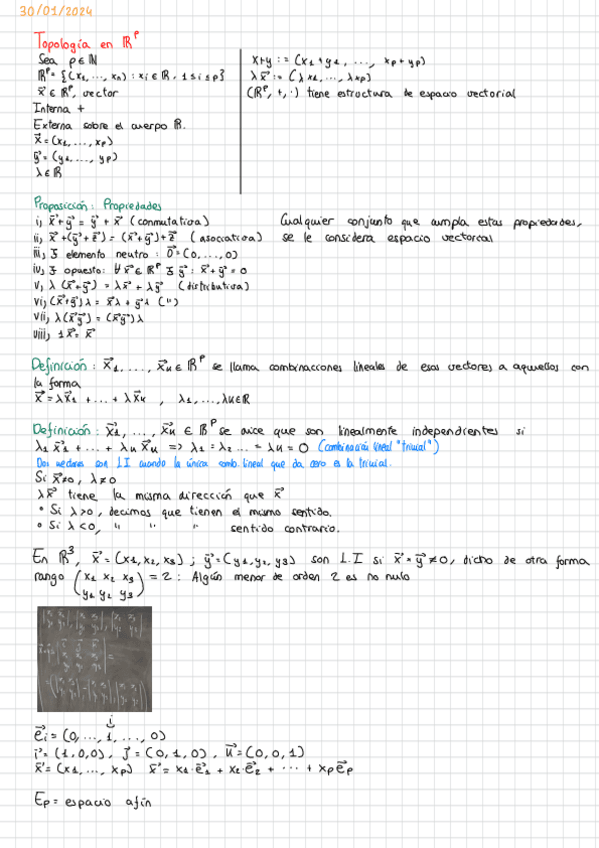 30/01/2024
Topología en ℝᵖ
Sea p ∈ ℕ
ℝᵖ = {(x₁, ..., xₙ) : xᵢ ∈ ℝ, 1 ≤ i ≤ p}
x⃗ ∈ ℝᵖ, vector
Interna +
Externa sobre el cuerpo ℝ.
x⃗ = (x₁, ..., xₚ)
y⃗ = (y₁, ..., yₚ)
λ ∈ ℝ
x+y := (x₁+y₁, ..., xₚ+yₚ)
λx⃗ := (λx₁, ..., λxₚ)
(ℝᵖ, +, ·) tiene estructura de espacio vectorial
Proposición: Propiedades
i) x⃗+y⃗ = y⃗ + x⃗ (conmutativa)
ii) x⃗+(y⃗+z⃗) = (x⃗+y⃗)+z⃗ (asociativa)
iii) ∃ elemento neutro : 0⃗ = (0, ..., 0)
iv) ∃ opuesto: ∀ x⃗ ∈ ℝᵖ ∃ y⃗ : x⃗ + y⃗ = 0
v) λ(x⃗+y⃗) = λx⃗ + λy⃗ (distributiva)
vi) (x⃗+y⃗)λ = x⃗λ + y⃗λ (")
vii) λ(x⃗y⃗) = (x⃗y⃗)λ
viii) 1x⃗ = x⃗
Cualquier conjunto que cumpla estas propiedades,
se le considera espacio vectorial
Definición: x⃗₁, ..., x⃗ₖ ∈ ℝᵖ se llama combinaciones lineales de esos vectores a aquellos con
la forma
x⃗ = λx⃗₁ + ... + λx⃗ₖ , λ₁, ..., λₖ ∈ ℝ
Definición: x⃗₁, ..., x⃗ₖ ∈ ℝᵖ se dice que son linealmente independientes si
λ₁x⃗₁ + ... + λₖx⃗ₖ => λ₁ = λ₂ ... = λₖ = 0 (combinación lineal "trivial")
Dos vectores son LI cuando la única comb. lineal que da cero es la trivial.
Si x⃗≠0, λ≠0
λx⃗ tiene la misma dirección que x⃗
• Si λ>0, decimos que tienen el mismo sentido.
• Si λ<0, " " " sentido contrario.
En ℝ³, x⃗ = (x₁, x₂, x₃) ; y⃗ = (y₁, y₂, y₃) son L.I si x⃗ × y⃗ ≠ 0, dicho de otra forma
rango (x₁ x₂ x₃
y₁ y₂ y₃) = 2 : Algún menor de orden 2 es no nulo
i
e⃗ᵢ = (0, ..., 1, ..., 0)
i⃗ = (1,0,0), j⃗ = (0,1,0), k⃗ = (0,0,1)
x⃗ = (x₁, ..., xₚ) x⃗ = x₁·e⃗₁ + x₂·e⃗₂ + ... + xₚe⃗ₚ
Eₚ = espacio afín